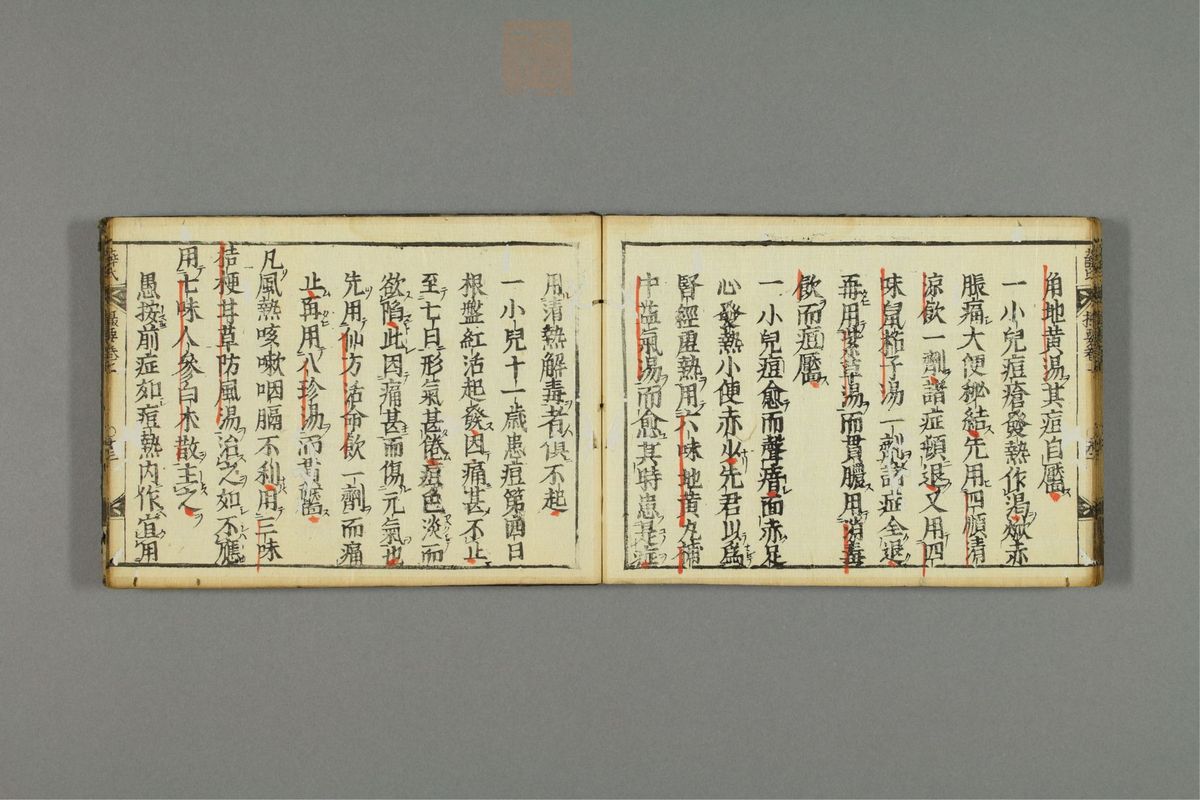 角地黃湯其痘自靨
一小兒痘瘡發熱作渴焮赤
脹痛大便秘結先用四順清
涼飲一劑諸症頓退又用四
味鼠粘子湯一劑諸症全退
再用紫草湯而貫膿用消毒
飲而痘靨
一小兒痘愈而聲瘖面赤足
心發熱小便赤少先君以為
腎經虛熱用六味地黃丸補
中益氣湯而愈其時患是症
用清熱解毒者俱不起
一小兒十一歲患痘第四日
根盤紅活起發因痛甚不止
至七日形氣甚倦痘色淡而
欲陷此因痛甚而傷元氣也
先用仙方活命飲一劑而痛
止再用八珍湯而貫靨
凡風熱咳嗽咽膈不利用三味
桔梗甘草防風湯治之如不應
用七味人參白朮散主之
愚按前症如痘熱內作宜用